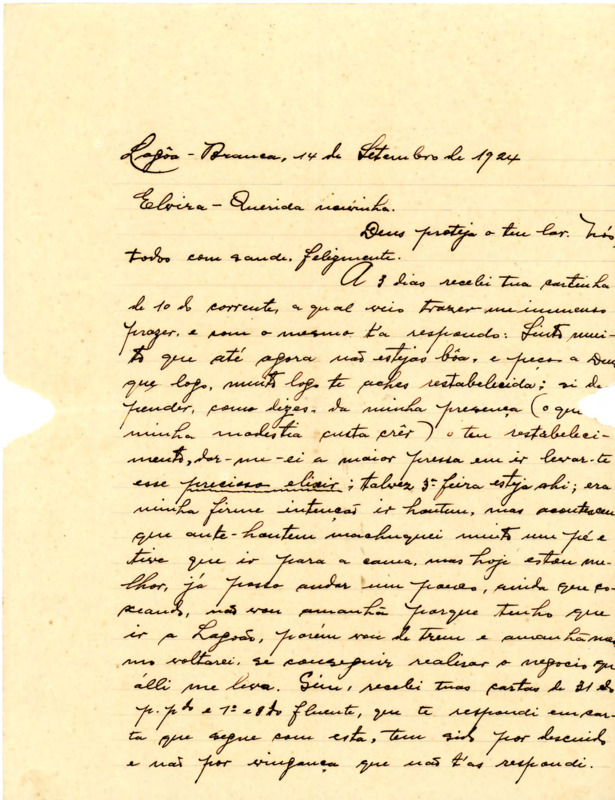 Lagôa-Branca, 14 de Setembro de 1924
Elvira - Querida noivinha.
Deus proteja o teu lar. Nós,
todos com saude, felizmente.
A 3 dias recebi tua cartinha
de 10 do corrente, a qual veio trazer-me immenso
prazer, e com o mesmo t'a respondo: Sinto mui-
to que até agora não estejas bôa, e peço a Deus
que logo, muito logo te aches restabelecida; si de-
pender, como dizes, da minha presença (o que
minha modestia custa crêr) o teu restabeleci-
mento, dar-me-ei a maior pressa em ir levar-te
esse precioso elixir; talvez 3ª feira esteja ahi; era
minha firme intenção ir hontem, mas aconteceu
que ante-hontem machuquei muito um pé e
tive que ir para a cama, mas hoje estou me-
lhor, já posso andar um pouco, ainda que co-
xeando, não vou amanhã porque tenho que
ir a Lagoão, porém vou de trem e amanhã mes-
mo voltarei, se conseguir realisar o negocio que
álli me leva. Sim, recebi tuas cartas de 31 do
p. pdo e 1º e 8 do fluente, que te respondi em car-
ta que segue com esta, tem sido por descuido
e não por vingança que não t'as respondi.